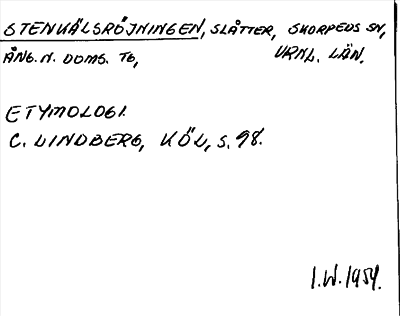 STENKÄLSRÖJNINGEN, SLÅTTER, SKORPEDS SN,
ÅNG. N. DOMS. TG, VRNL. LÄN.
ETYMOLOGI.
C. LINDBERG, KÖL, S. 98.
I.W. 1954.